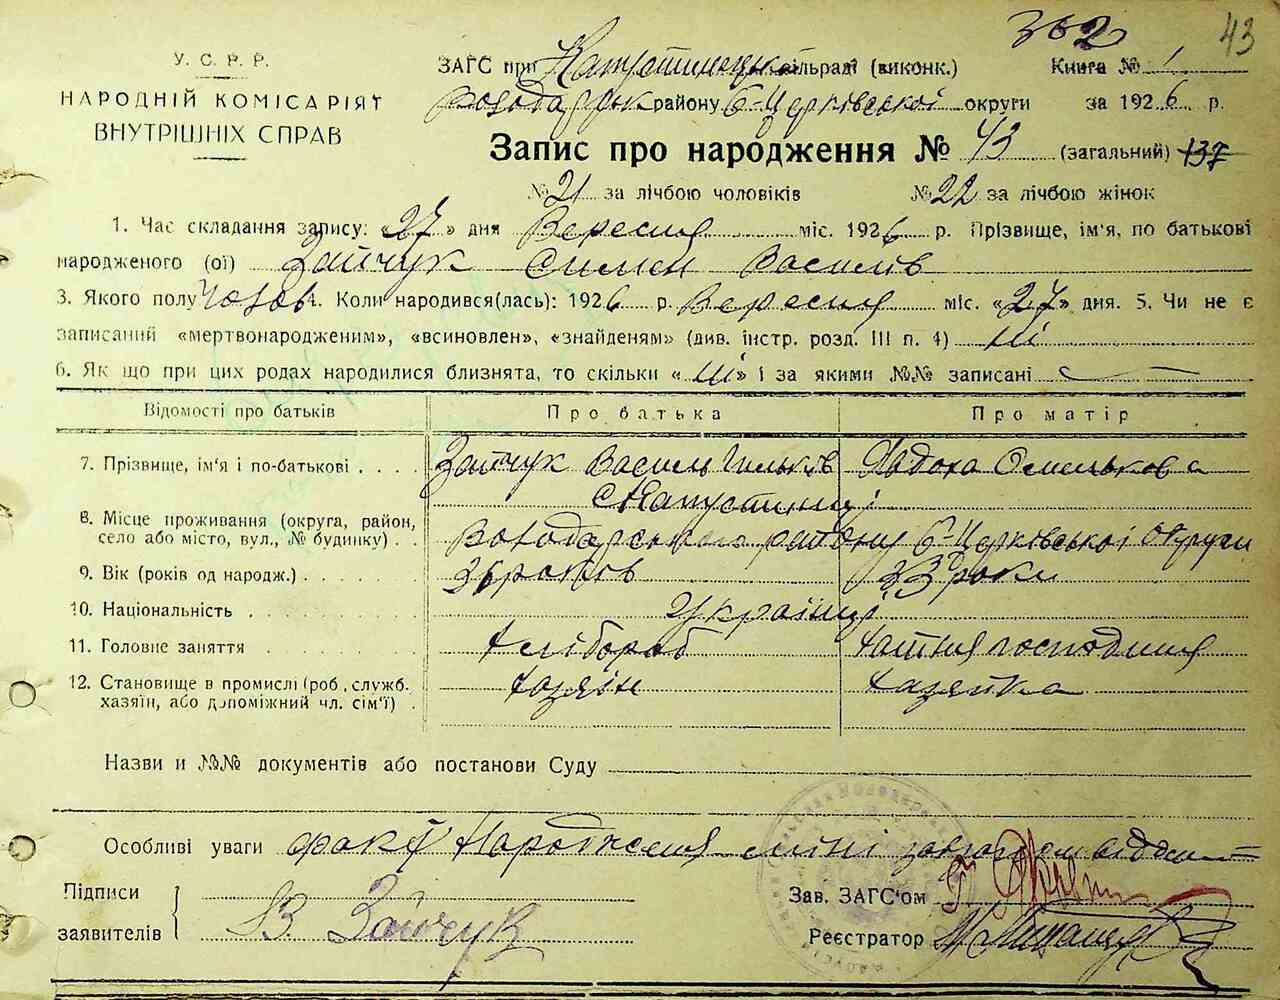 302 43
У. С. Р. Р.
НАРОДНІЙ КОМІСАРІЯТ
ВНУТРІШНІХ СПРАВ
ЗАГС при Капустинецькій сільраді (виконк.) Книга № 1
району Б-Церківської округи за 1926 р.
Запис про народження № 43 (загальний) 137
№ 21 за лічбою чоловіків № 22 за лічбою жінок
1. Час складання запису: «27» дня Вересня міс. 1926 р. Прізвище, ім'я, по батькові
народженого (ої) Зайчук Симен Василів
3. Якого полу Чолов 4. Коли народився(лась): 1926 р. Вересня міс. «27» дня. 5. Чи не є
записаний «мертвонародженим», «всиновлен», «знайденям» (див. інстр. розд. III п. 4) ні
6. Як що при цих родах народилися близнята, то скільки « ні » і за якими №№ записані
Відомості про батьків Про батька Про матір
7. Прізвище, ім'я і по-батькові . . . . Зайчук Василь Ільків Явдоха Омелькова
с Капустинці
8. Місце проживання (округа, район,
село або місто, вул., № будинку) . . Володарського району Б-Церківської Округи
9. Вік (років од народж.) . . . . років 33 роки
10. Національність . . . . Українці
11. Головне заняття . . . . хлібороб хатня господиня
12. Становище в промислі (роб., служб.
хазяїн, або допоміжний чл. сім'ї) . хазяїн хазяйка
Назви и №№ документів або постанови Суду
Особливі уваги факт Народження
Підписи
заявителів ВЗ Зайчук
Зав. ЗАГС'ом
Реєстратор